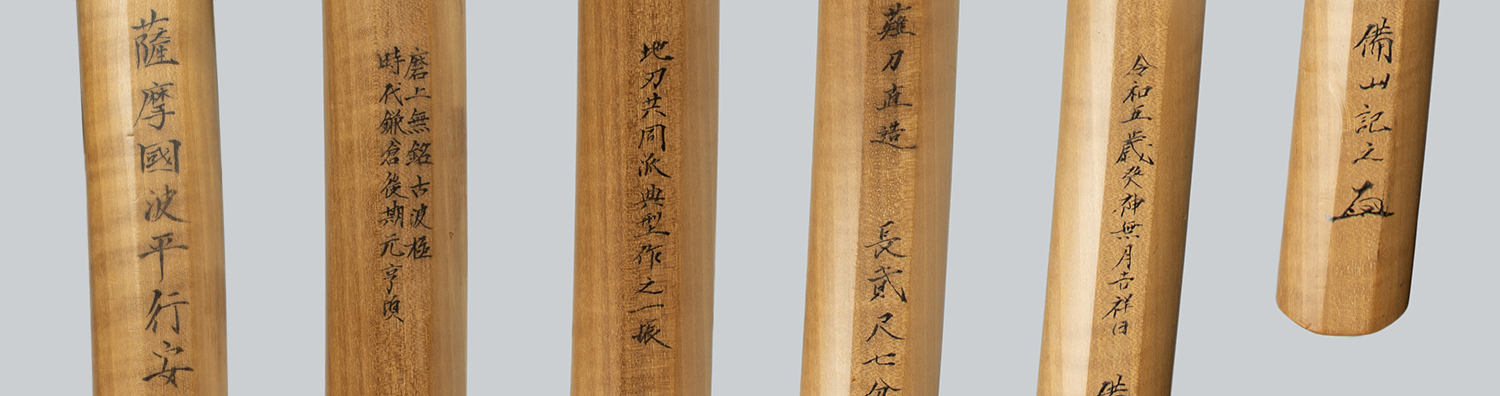 薩摩國波平行安
磨上無銘古波極
時代鎌倉後期元亨頃
地刃共同派典型作之一振
薙刀直造 長貳尺七分
令和五歳癸卯神無月吉祥日 備
備州記之